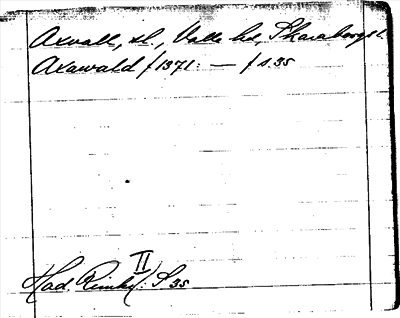 Axvall, sl., Valle hd, Skaraborgs l.
Axawald / 1371: — / s 35
II
Had. Rimkr: S 35